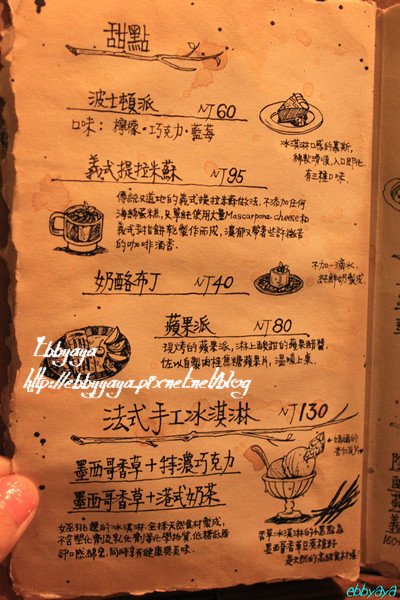 甜點
波士頓派 NT60
口味：檸檬·巧克力·藍莓
冰淇淋口感的慕斯,
綿軟滑順,入口即化,
有三種口味.
義式提拉米蘇 NT95
傳統又道地的義式提拉米蘇做法,不添加任何
海綿蛋糕,只單純使用大量Mascarpone cheese和
義式手指餅乾製作而成,濃郁又帶著些許微苦
的咖啡酒香.
奶酪布丁 NT40
不加一滴水,
純鮮奶製成.
蘋果派 NT80
現烤的蘋果派,淋上酸甜的蘋果醋醬,
佐以自製肉桂焦糖蘋果片,溫暖上桌.
Ebbyaya
http://ebbyyaya.pixnet.net/blog
法式手工冰淇淋 NT130
墨西哥香草+特濃巧克力
墨西哥香草+港式奶茶
的冰淇淋,全採天然食材製成,
不含塑化劑及乳化劑等化學物質,低糖低脂
卻口感綿密,同時享有健康與美味.
杏仁瓦片
香草冰淇淋的小黑點為
墨西哥香草豆莢籽
是天然的高級食材喔!
160
ebbyaya